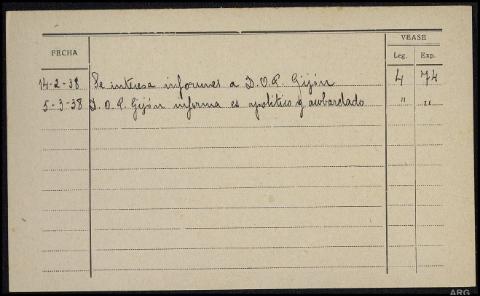 VEASE
FECHA
Leg. Exp.
14-2-38 Se interesa informes a D.O.P. Gijón 4 74
5-3-38 D.O.P. Gijón informa es apolitico y acobardado " "
ARG